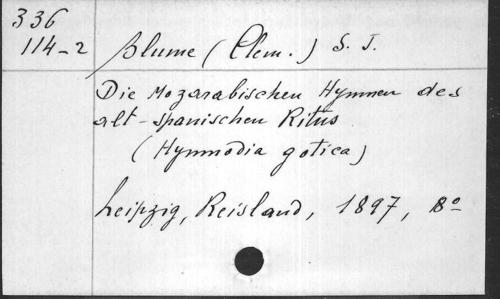 336
114-2
Blume (Clem.) S. J.
Die Mozarabischen Hymnen des
alt-spanischen Ritus
(Hymnodia gotica)
Leipzig, Reisland, 1897, 8º